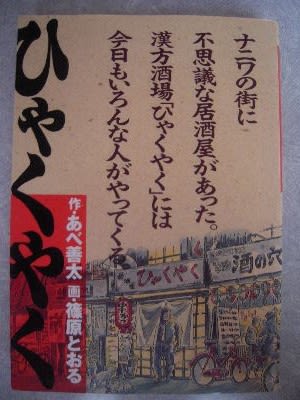 ナニワの街に
不思議な居酒屋があった。
漢方酒場「ひゃくやく」には
今日もいろんな人がやってくる
ひゃくやく
作・あべ善太 画・篠原とおる
ひゃくやく
酒の六